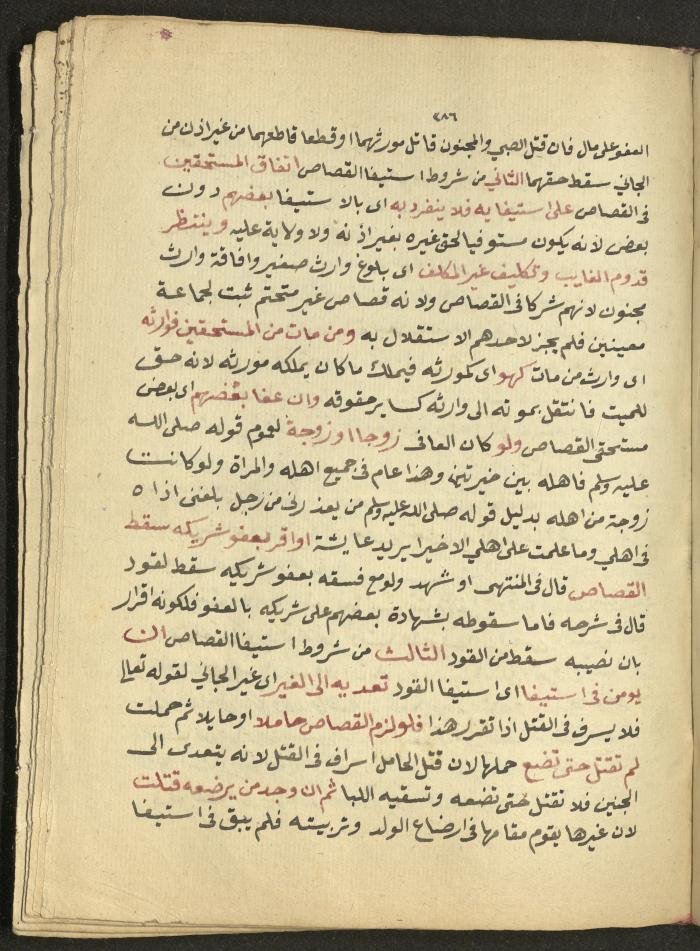 ٢٨٦
العفو على مال فان قتل الصبي والمجنون قاتل مورثهما او قطعا قاطعهما من غير اذن من
الجاني سقط حقهما الثاني من شروط استيفا القصاص اتفاق المستحقين
في القصاص على استيفايه فلا ينفرد به اى بالاستيفا بعضهم دون
بعض لانه يكون مستوفيا لحق غيره بغير اذنه ولا ولاية عليه وينتظر
قدوم الغايب وتكليف غير المكلف اى بلوغ وارث صغير وافاقة وارث
مجنون لانهم شركا في القصاص ولانه قصاص غير متحتم ثبت لجماعة
معينين فلم يجز لاحدهم الاستقلال به ومن مات من المستحقين فوارثه
اى وارث من مات كهو اى كمورثه فيملك ما كان يملكه مورثه لانه حق
للميت فانتقل بموته الى وارثه كساير حقوقه وان عفا بعضهم اى بعض
مستحقى القصاص ولو كان العافى زوجا او زوجة لعموم قوله صلى الله
عليه وسلم فاهله بين خيرتين وهذا عام في جميع اهله والمراة ولو كانت
زوجة من اهله بدليل قوله صلى الله عليه وسلم من يعذرنى من رجل بلغنى اذاه
في اهلي وما علمت على اهلي الا خيرا يريد عايشة او اقر بعفو شريكه سقط
القصاص قال في المنتهى او شهد ولو مع فسقه بعفو شريكه سقط لقود
قال في شرحه فاما سقوطه بشهادة بعضهم على شريكه بالعفو فلكونه اقرار
بان نصيبه سقط من القود الثالث من شروط استيفا القصاص ان
يومن في استيفا اى استيفا القود تعديه الى الغير اى غير الجاني لقوله تعالى
فلا يسرف في القتل اذا تقرر هذا فلو لزم القصاص حاملا او حايلا ثم حملت
لم تقتل حتى تضع حملها لان قتل الحامل اسراف في القتل لانه يتعدى الى
الجنين فلا تقتل حتى تضعه وتسقيه اللبا ثم ان وجد من يرضعه قتلت
لان غيرها يقوم مقامها في ارضاع الولد وتربيته فلم يبق في استيفا